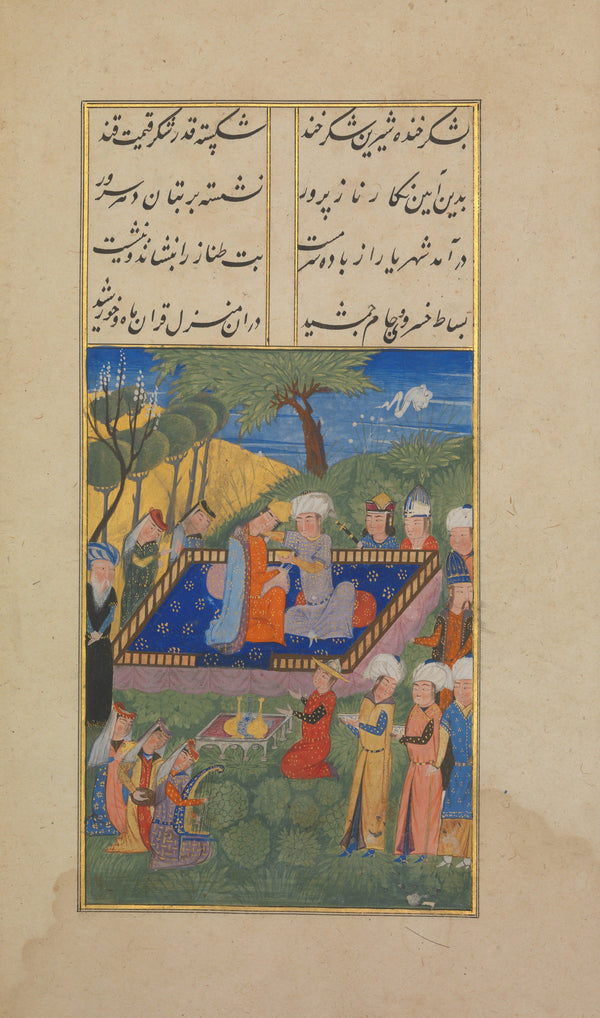 بشکر خنده شیرین شکر خند شکسته قدر شکر قیمت قند
بدین آیین نکار ناز پرور نشسته بر بتان دهر سرور
در آمد شهریار از باده سرمست بت طناز را بنشاند و بنشست
بساط خسروی و جام جمشید دران منزل قران ماه و خورشید